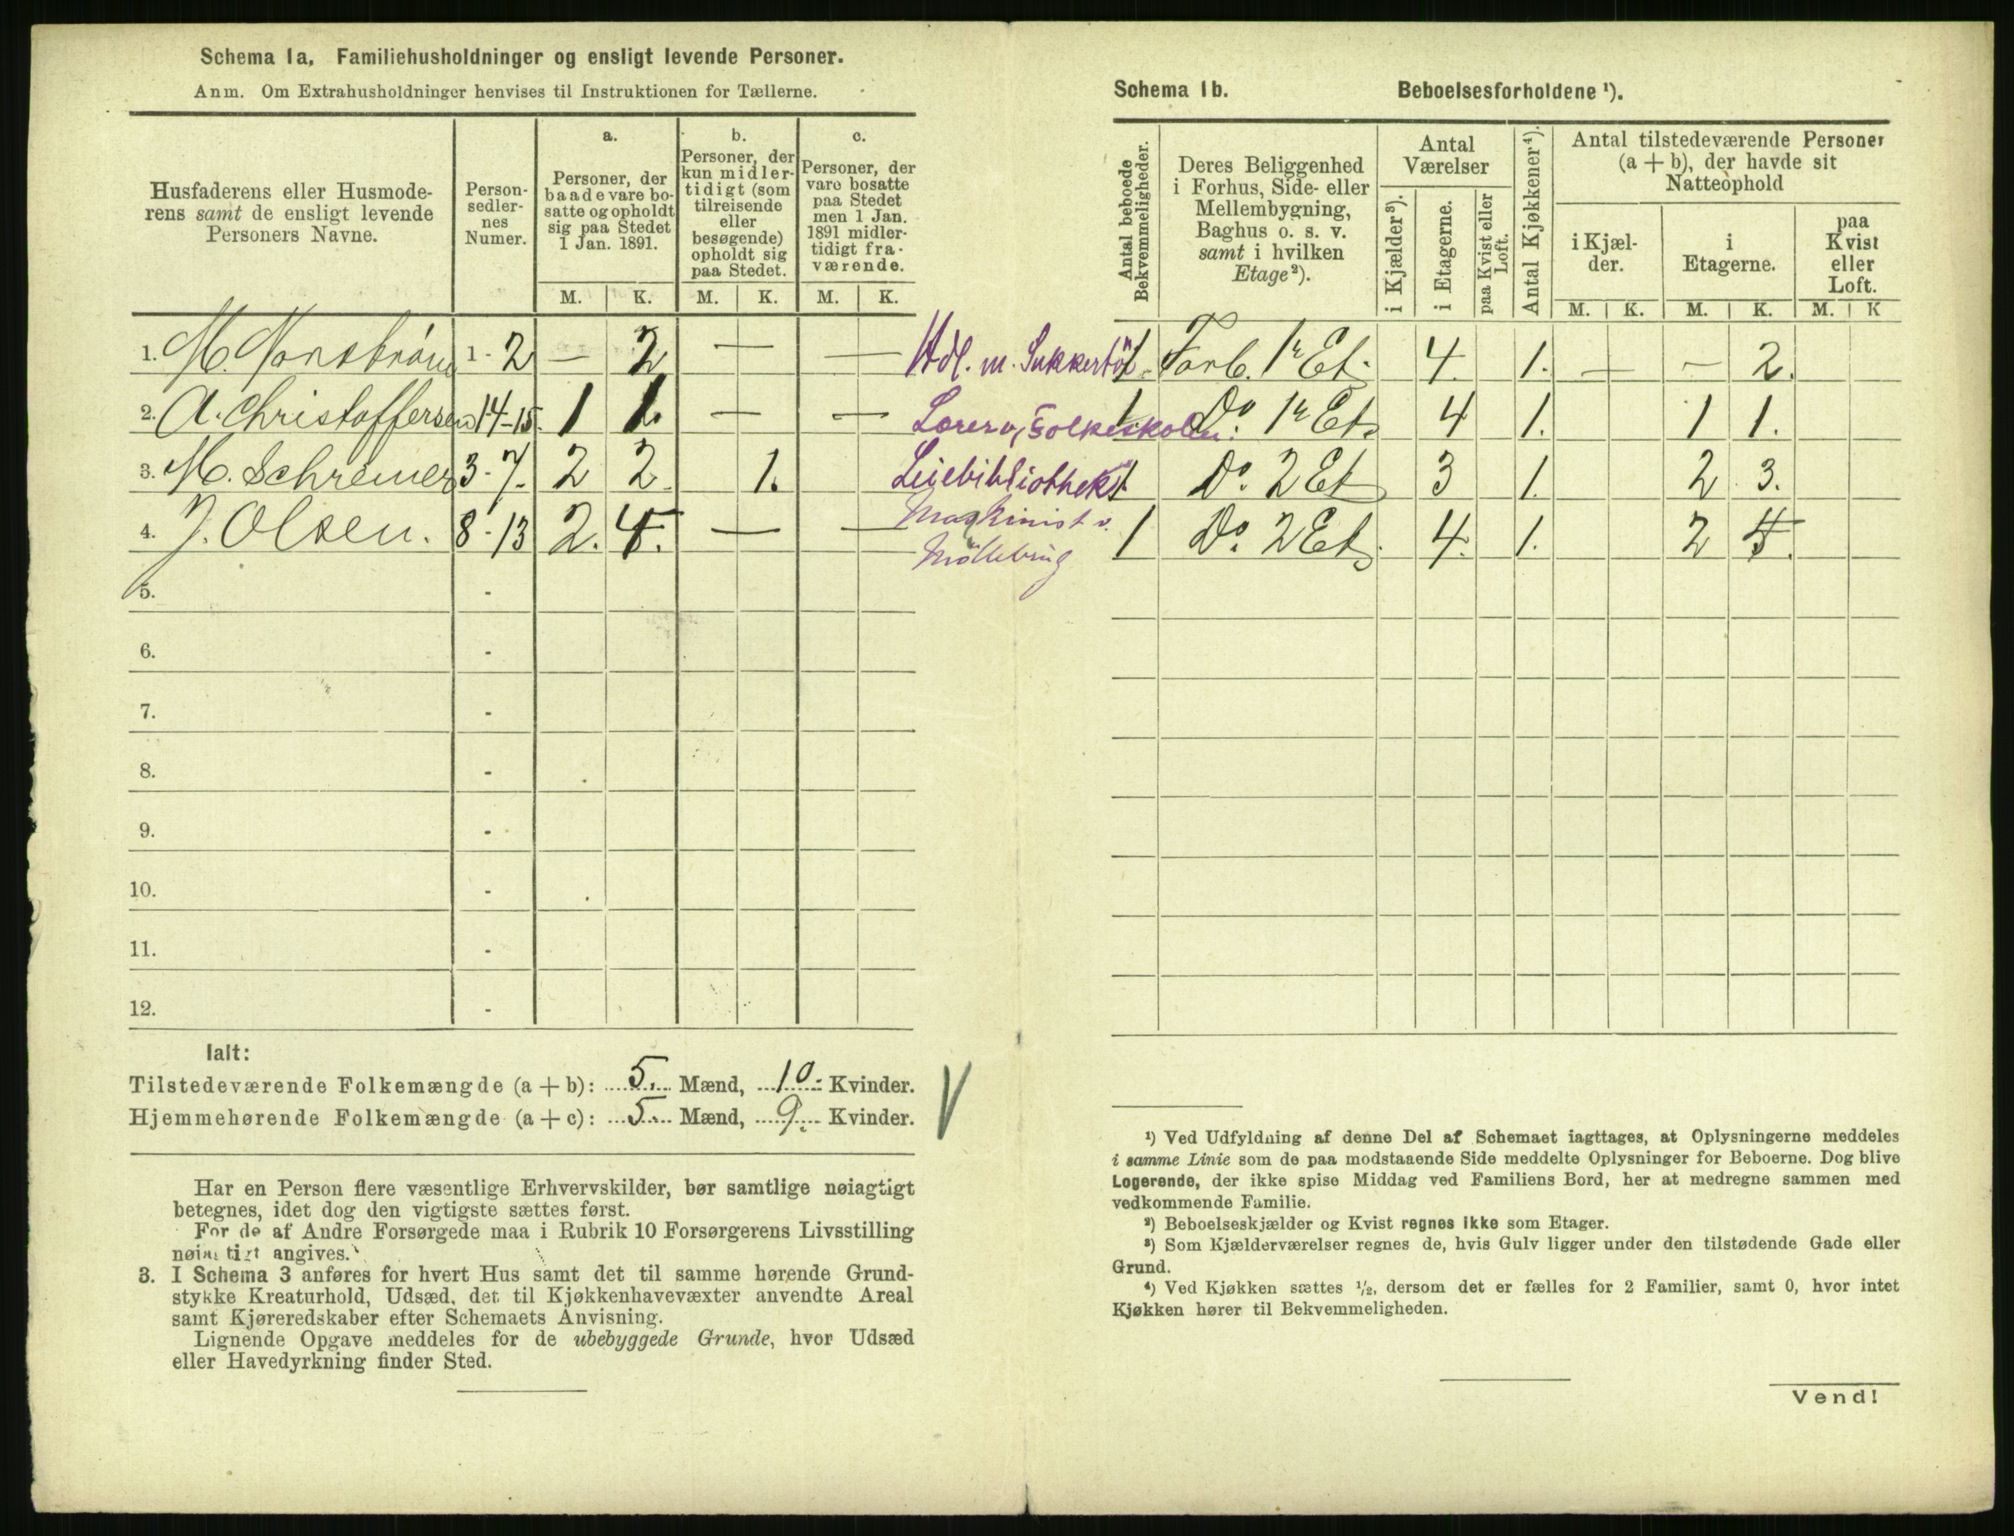 Schema 1a, Familiehusholdninger og ensligt levende Personer.
Anm. Om Extrahusholdninger henvises til Instruktionen for Tællerne.
Husfaderens eller Husmode-
rens samt de ensligt levende
Personers Navne.
Person-
sedler-
nes
Numer.
a.
Personer, der
baade vare bo-
satte og opholdt
sig paa Stedet
1 Jan. 1891.
b.
Personer, der
kun midler-
tidigt (som
tilreisende
eller
besøgende)
opholdt sig
paa Stedet.
c.
Personer, der
vare bosatte
paa Stedet
men 1 Jan.
1891 midler-
tidigt fra-
værende.
M. K. M. K. M. K.
1. M. 1 - 2 — 2 — —
2. A. Christoffersen 14-15. 1 1. — —
3. M. Schreiner 3 - 7. 2 2. 1.
4. J. Olsen. 8 - 13 2. 4. — —
5. -
6. -
7. -
8. -
9. -
10. -
11. -
12. -
Ialt:
Tilstedeværende Folkemængde (a + b): 5. Mænd, 10. Kvinder.
Hjemmehørende Folkemængde (a + c): 5. Mænd, 9. Kvinder.
Har en Person flere væsentlige Erhvervskilder, bør samtlige nøiagtigt
betegnes, idet dog den vigtigste sættes først.
For de af Andre Forsørgede maa i Rubrik 10 Forsørgerens Livsstilling
nøiagtigt angives.
3. I Schema 3 anføres for hvert Hus samt det til samme hørende Grund-
stykke Kreaturhold, Udsæd, det til Kjøkkenhavevæxter anvendte Areal
samt Kjøreredskaber efter Schemaets Anvisning.
Lignende Opgave meddeles for de ubebyggede Grunde, hvor Udsæd
eller Havedyrkning finder Sted.
Schema 1b. Beboelsesforholdene ¹).
Antal beboede
Bekvemmeligheder.
Deres Beliggenhed
i Forhus, Side- eller
Mellembygning,
Baghus o. s. v.
samt i hvilken
Etage ²).
Antal
Værelser
i Kjælder ³).
i Etagerne.
paa Kvist eller
Loft.
Antal Kjøkkener ⁴).
Antal tilstedeværende Personer
(a + b), der havde sit
Natteophold
i Kjæl-
der.
i
Etagerne.
paa
Kvist
eller
Loft.
M. K. M. K. M. K
Hdl. m. Sukkertöi 1 Forb. 1ʳ Et. 4. 1. — — 2.
Lærer v. Folkeskolen. 1 Do 1ʳ Et. 4 1. 1 1.
Leiebibliothek 1 Do. 2 Et. 3 1. 2 3.
Maskinist v. 1 Do. 2 Et. 4. 1. 2 4.
Möllebrug
¹) Ved Udfyldning af denne Del af Schemaet iagttages, at Oplysningerne meddeles
i samme Linie som de paa modstaaende Side meddelte Oplysninger for Beboerne. Dog blive
Logerende, der ikke spise Middag ved Familiens Bord, her at medregne sammen med
vedkommende Familie.
²) Beboelseskjælder og Kvist regnes ikke som Etager.
³) Som Kjælderværelser regnes de, hvis Gulv ligger under den tilstødende Gade eller
Grund.
⁴) Ved Kjøkken sættes ½, dersom det er fælles for 2 Familier, samt 0, hvor intet
Kjøkken hører til Bekvemmeligheden.
Vend!